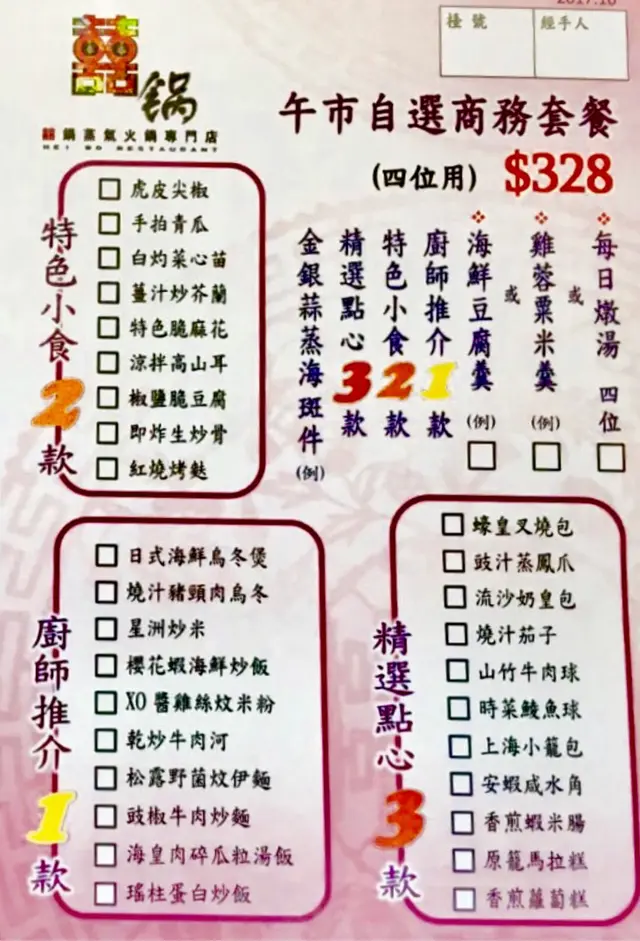 2017.10
檯號
經手人
囍鍋
囍鍋蒸氣火鍋專門店
午市自選商務套餐
(四位用) $328
❖每日燉湯 四位
或
❖雞蓉粟米羹 (例)
或
❖海鮮豆腐羹 (例)
廚師推介1款
特色小食2款
精選點心3款
金銀蒜蒸海斑件(例)
特色小食2款
虎皮尖椒
手拍青瓜
白灼菜心苗
薑汁炒芥蘭
特色脆麻花
涼拌高山耳
椒鹽脆豆腐
即炸生炒骨
紅燒烤麩
廚師推介1款
日式海鮮烏冬煲
燒汁豬頸肉烏冬
星洲炒米
櫻花蝦海鮮炒飯
XO醬雞絲炆米粉
乾炒牛肉河
松露野菌炆伊麵
豉椒牛肉炒麵
海皇肉碎瓜粒湯飯
瑤柱蛋白炒飯
精選點心3款
蠔皇叉燒包
豉汁蒸鳳爪
流沙奶皇包
燒汁茄子
山竹牛肉球
時菜鯪魚球
上海小籠包
安蝦咸水角
香煎蝦米腸
原籠馬拉糕
香煎蘿蔔糕